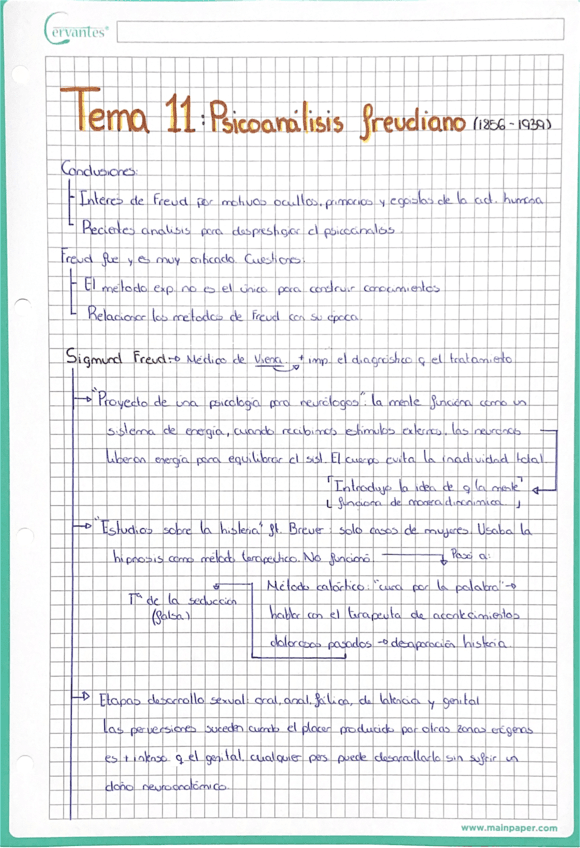 Cervantes®
Tema 11: Psicoanálisis freudiano (1856-1939)
Conclusiones:
Interés de Freud por motivos ocultos, primarios y egoístas de la act. humana
Recientes analisis para desprestigiar el psicoanálisis.
Freud fue y es muy criticado. Cuestiones:
El metodo exp. no es el único para construir conocimientos
Relacionar los metodos de Freud con su época.
Sigmund Freud→ Médico de Viena. + imp. el diagnóstico q el tratamiento
"Proyecto de una psicología para neurólogos": la mente funciona como un
sistema de energía, cuando recibimos estímulos externos, las neuronas
liberan energía para equilibrar el sist. El cuerpo evita la inactividad total.
"Introdujo la idea de q la mente"
funciona de manera dinamica
"Estudios sobre la histeria" ft. Breuer: solo casos de mujeres. Usaba la
hipnosis como método terapeutico. No funcionó. Pasó a:
Método catártico: "cura por la palabra"→
Tª de la seducción
(falsa)
hablar con el terapeuta de acontecimientos
dolorosos pasados → desaparición histeria.
Etapas desarrollo sexual: oral, anal, fálica, de latencia y genital
Las perversiones suceden cuando el placer producido por otras zonas erógenas
es + intenso q el genital, cualquier pers puede desarrollarla sin sufrir un
daño neuroanatómico.
www.mainpaper.com